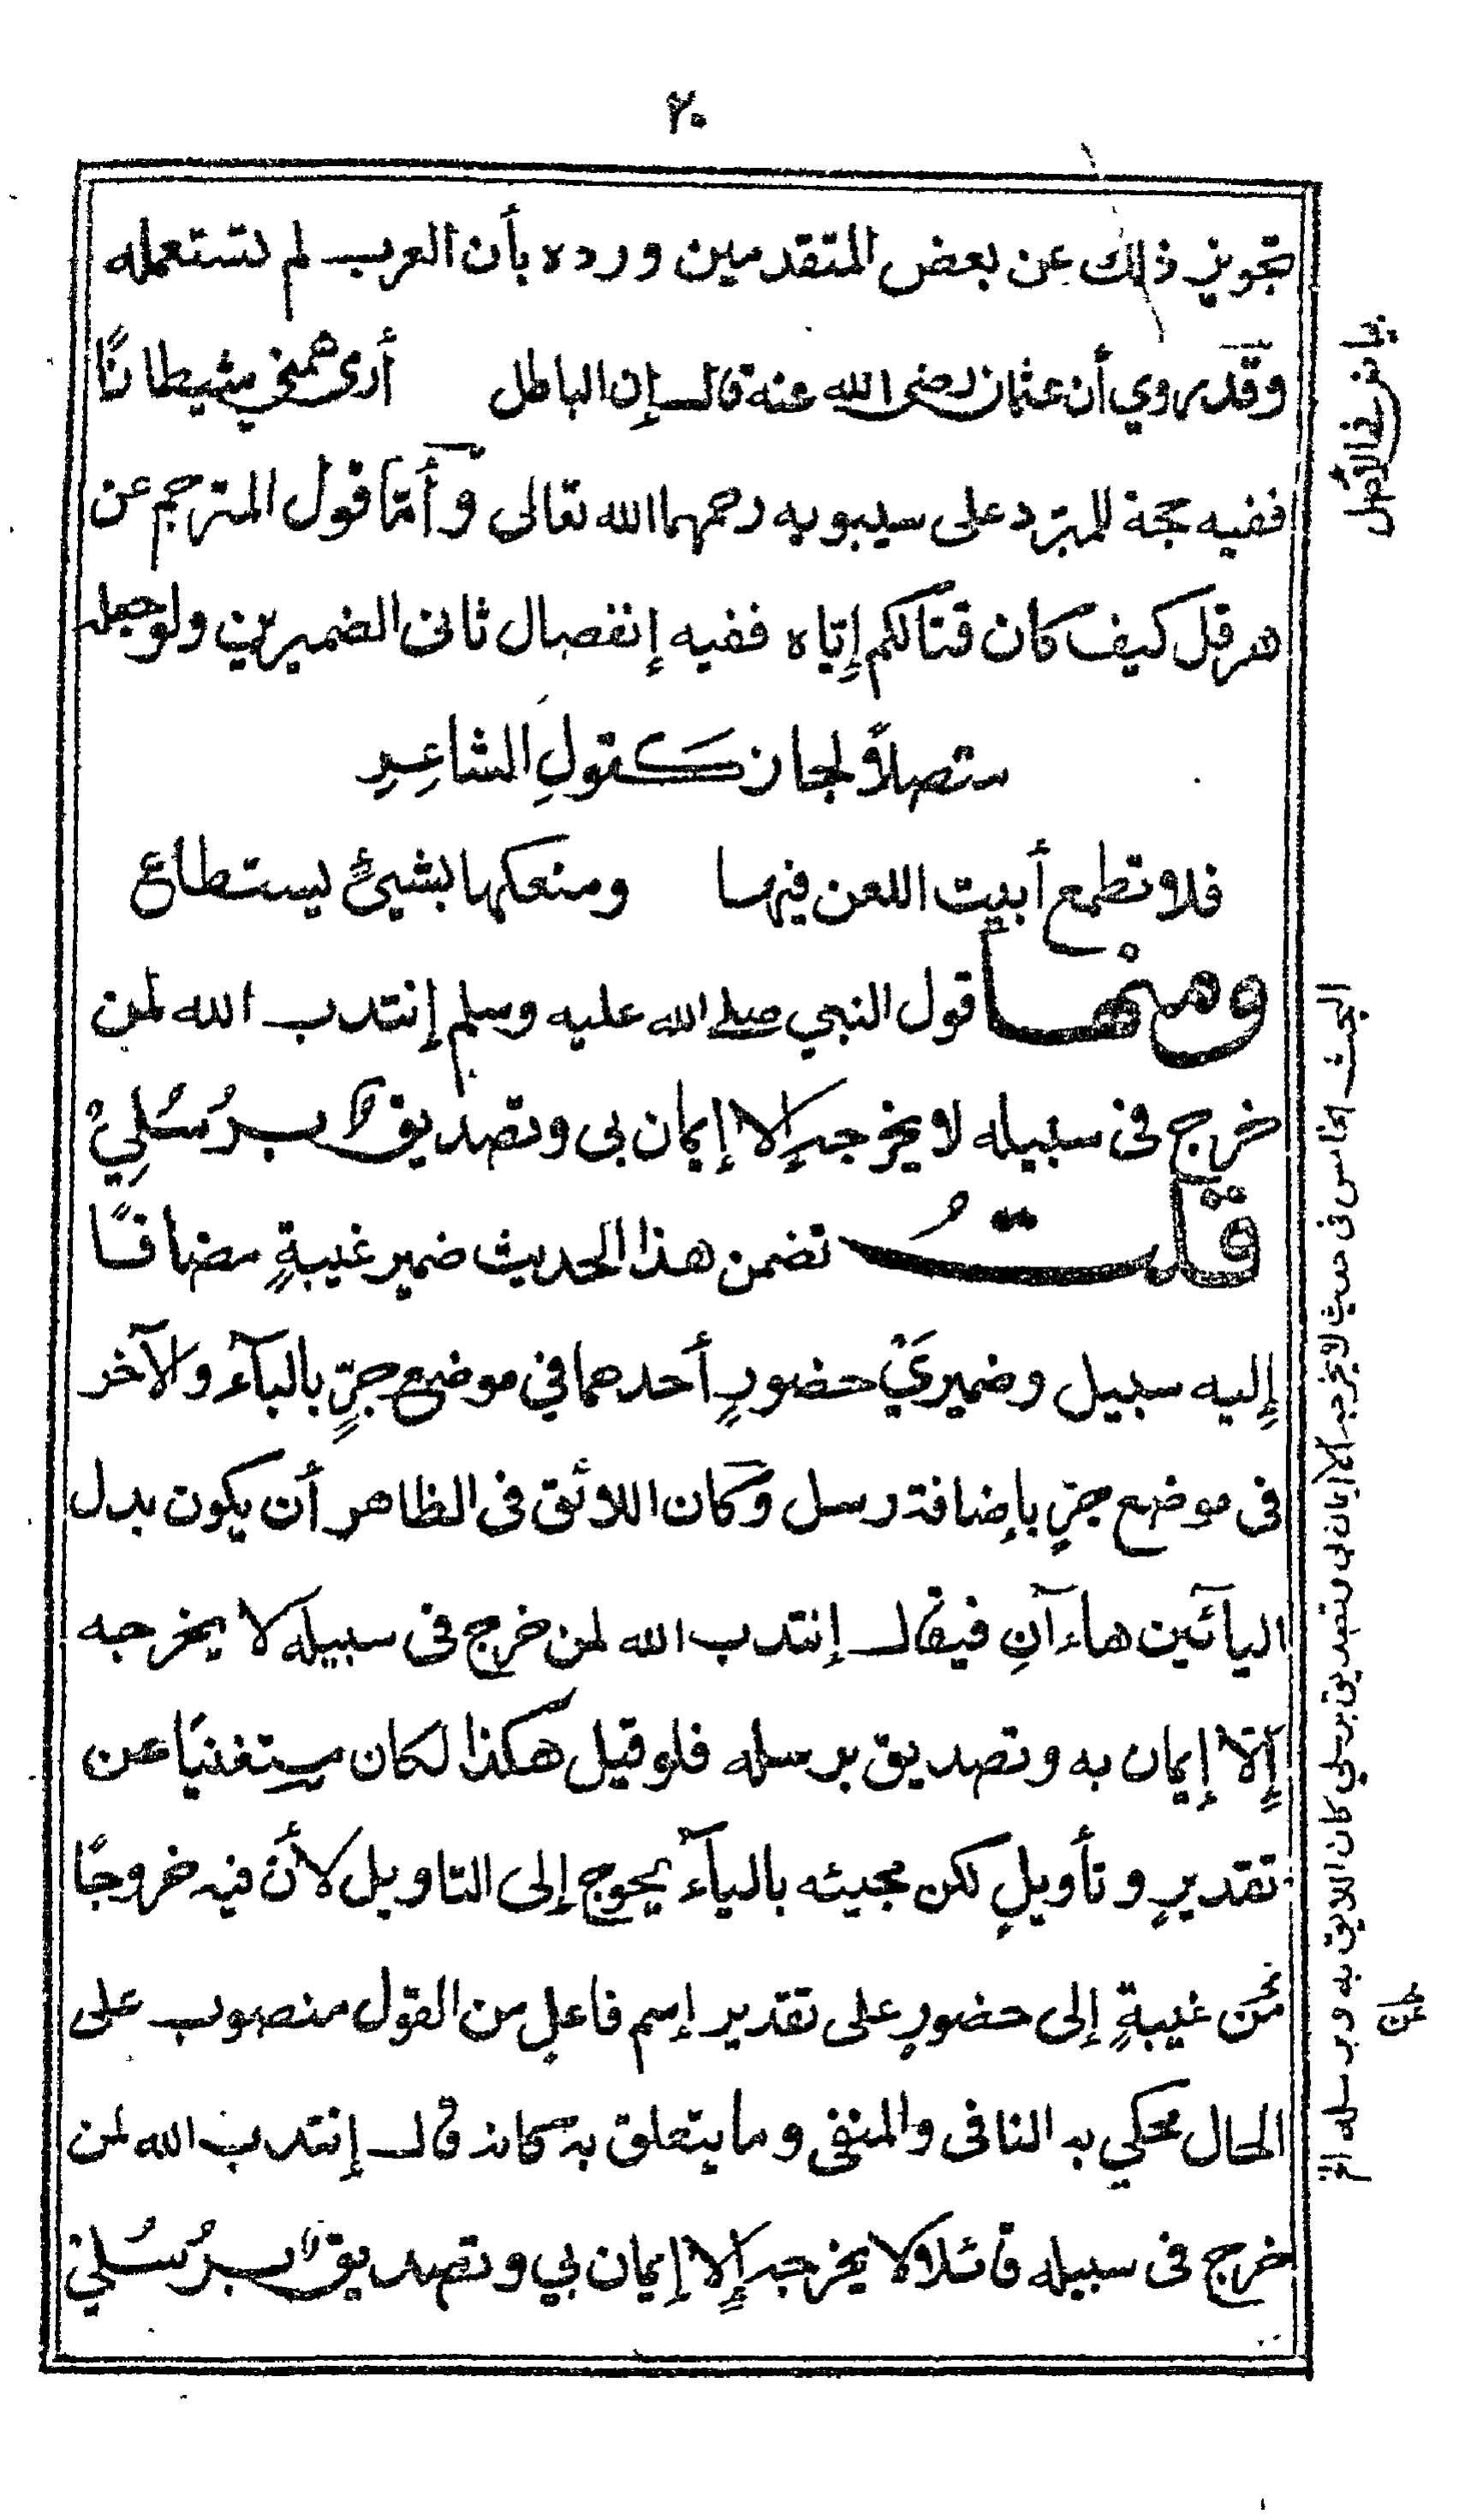 ٢٠
تجويز ذلك عن بعض المتقدمين ورده بأن العرب لم تستعمله
وقد روي أن عثمان رضى الله عنه قال إن الباطل أراهمني شيطانًا
ففيه حجة للمبرد على سيبويه رحمهما الله تعالى وأمّا قول المترجم عن
هرقل كيف كان قتالكم إيّاه ففيه إنفصال ثانى الضميرين ولو جعله
متصلاً لجاز كقولِ الشاعِرِ
فلا تطمع أبيت اللعن فيها ومنعكها بشيئٍ يستطاع
ومنها قول النبي صلى الله عليه وسلم إنتدب الله لمن
خرج فى سبيله لا يخرجه إلا إيمان بى وتصديق برُسُلِيْ
قلتُ تضمن هذا الحديث ضمير غيبةٍ مضافًا
إليه سبيل وضميريْ حضورٍ أحدهما في موضع جرٍّ بالبآء والآخر
فى موضع جرٍّ بإضافة رسل وكان اللائق فى الظاهر أن يكون بدل
اليائين هاءآنِ فيقال إنتدب الله لمن خرج فى سبيله لا يخرجه
إلّا إيمان به وتصديق برسله فلو قيل هكذا لكان مستغنيًا عن
تقديرٍ وتأويلٍ لكن مجيئه باليآء يحوج إلى التاويل لأن فيه خروجًا
من غيبةٍ إلى حضورٍ على تقدير إسم فاعلٍ من القول منصوب على
الحال محكي به النافى والمنفى وما يتعلق به كانه قال إنتدب الله لمن
خرج فى سبيله قائلا لا يخرجه إلا إيمان بي وتصديق برُسُلي
فى الأصل
البحث الخامس فى حديث لا يخرجه إلا ايمان بى وتصديق برسلي كان اللايق به وبرسله الخ
عن